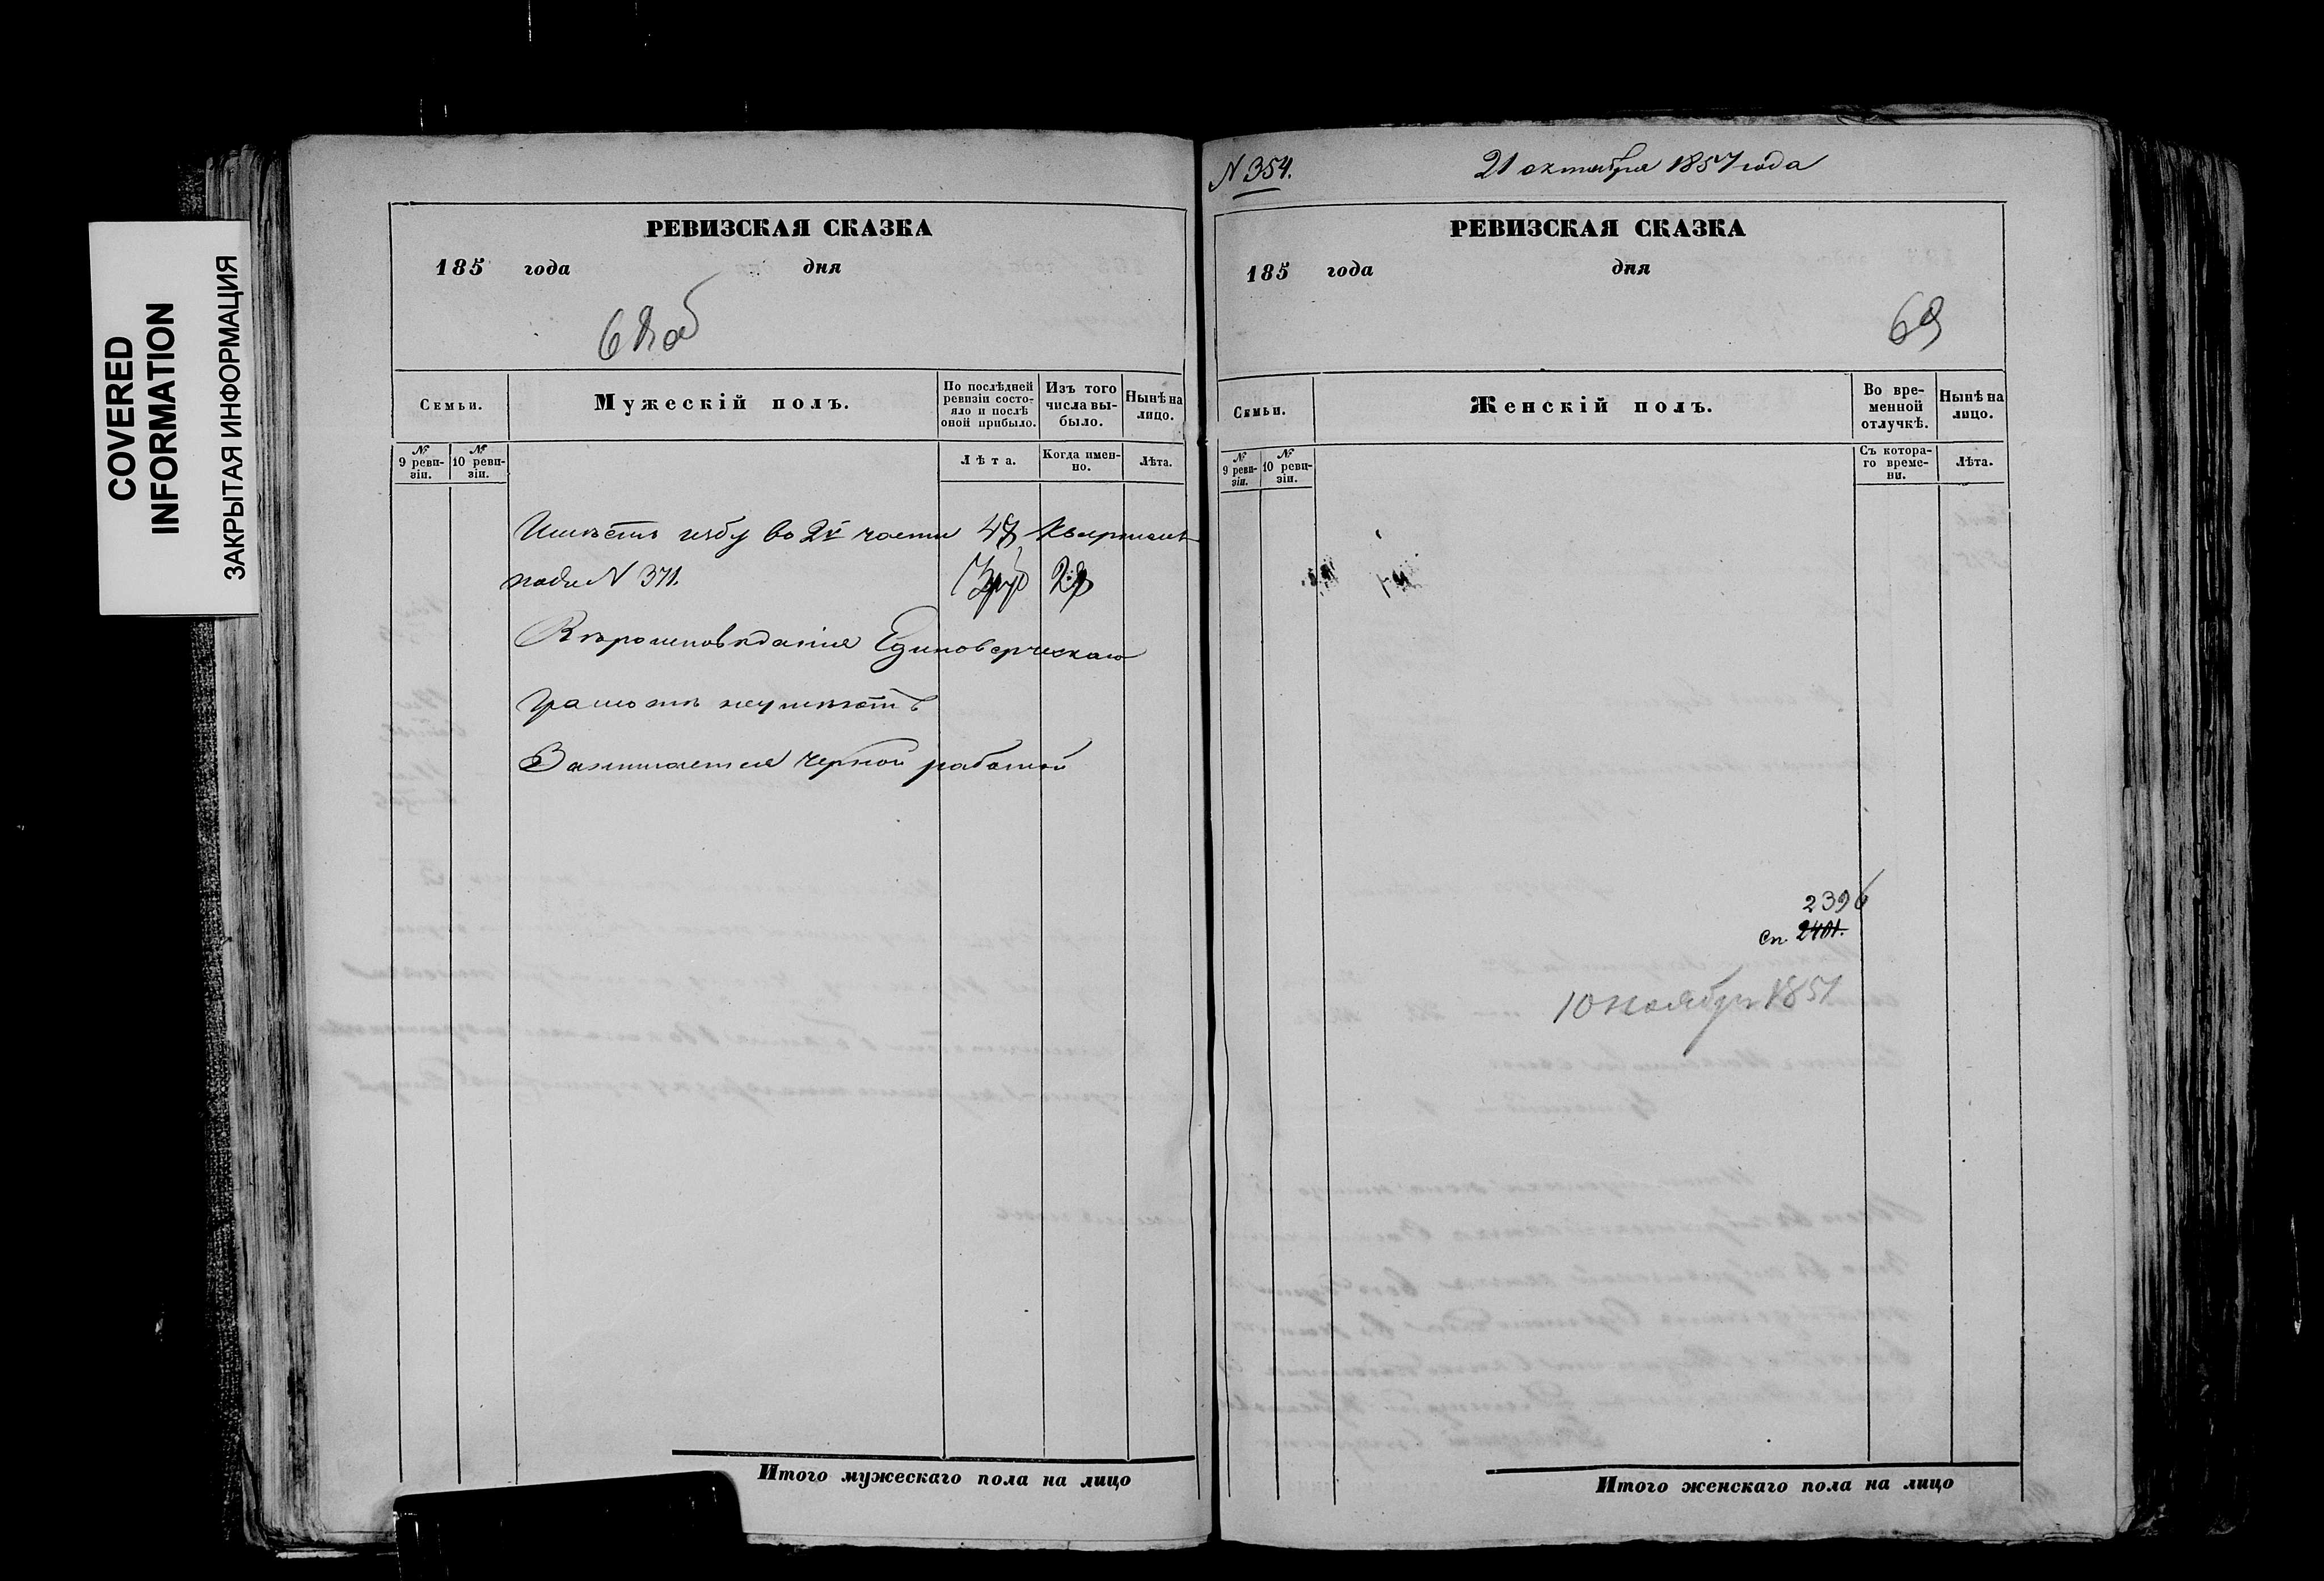 COVERED
INFORMATION
ЗАКРЫТАЯ ИНФОРМАЦИЯ
РЕВИЗСКАЯ СКАЗКА
185 года дня
68 об
Семьи.
Мужескій полъ.
По послѣдней ревизіи состояло и послѣ оной прибыло.
Изъ того числа выбыло.
Нынѣ на лицо.
№ 9 ревизіи.
№ 10 ревизіи.
Лѣта.
Когда именно.
Лѣта.
Имѣетъ избу во 2й части 47 квартала
подъ N 371.
Вѣроисповѣданія Единоверческаго
Грамотѣ неумѣетъ
Занимается черной работой
Итого мужескаго пола на лицо
N 354.
21 октября 1857 года
РЕВИЗСКАЯ СКАЗКА
185 года дня
69
Семьи.
Женскій полъ.
Во временной отлучкѣ.
Нынѣ на лицо.
№ 9 ревизіи.
№ 10 ревизіи.
Съ котораго времени.
Лѣта.
2396
Сп. 2401.
10 ноября 1857
Итого женскаго пола на лицо